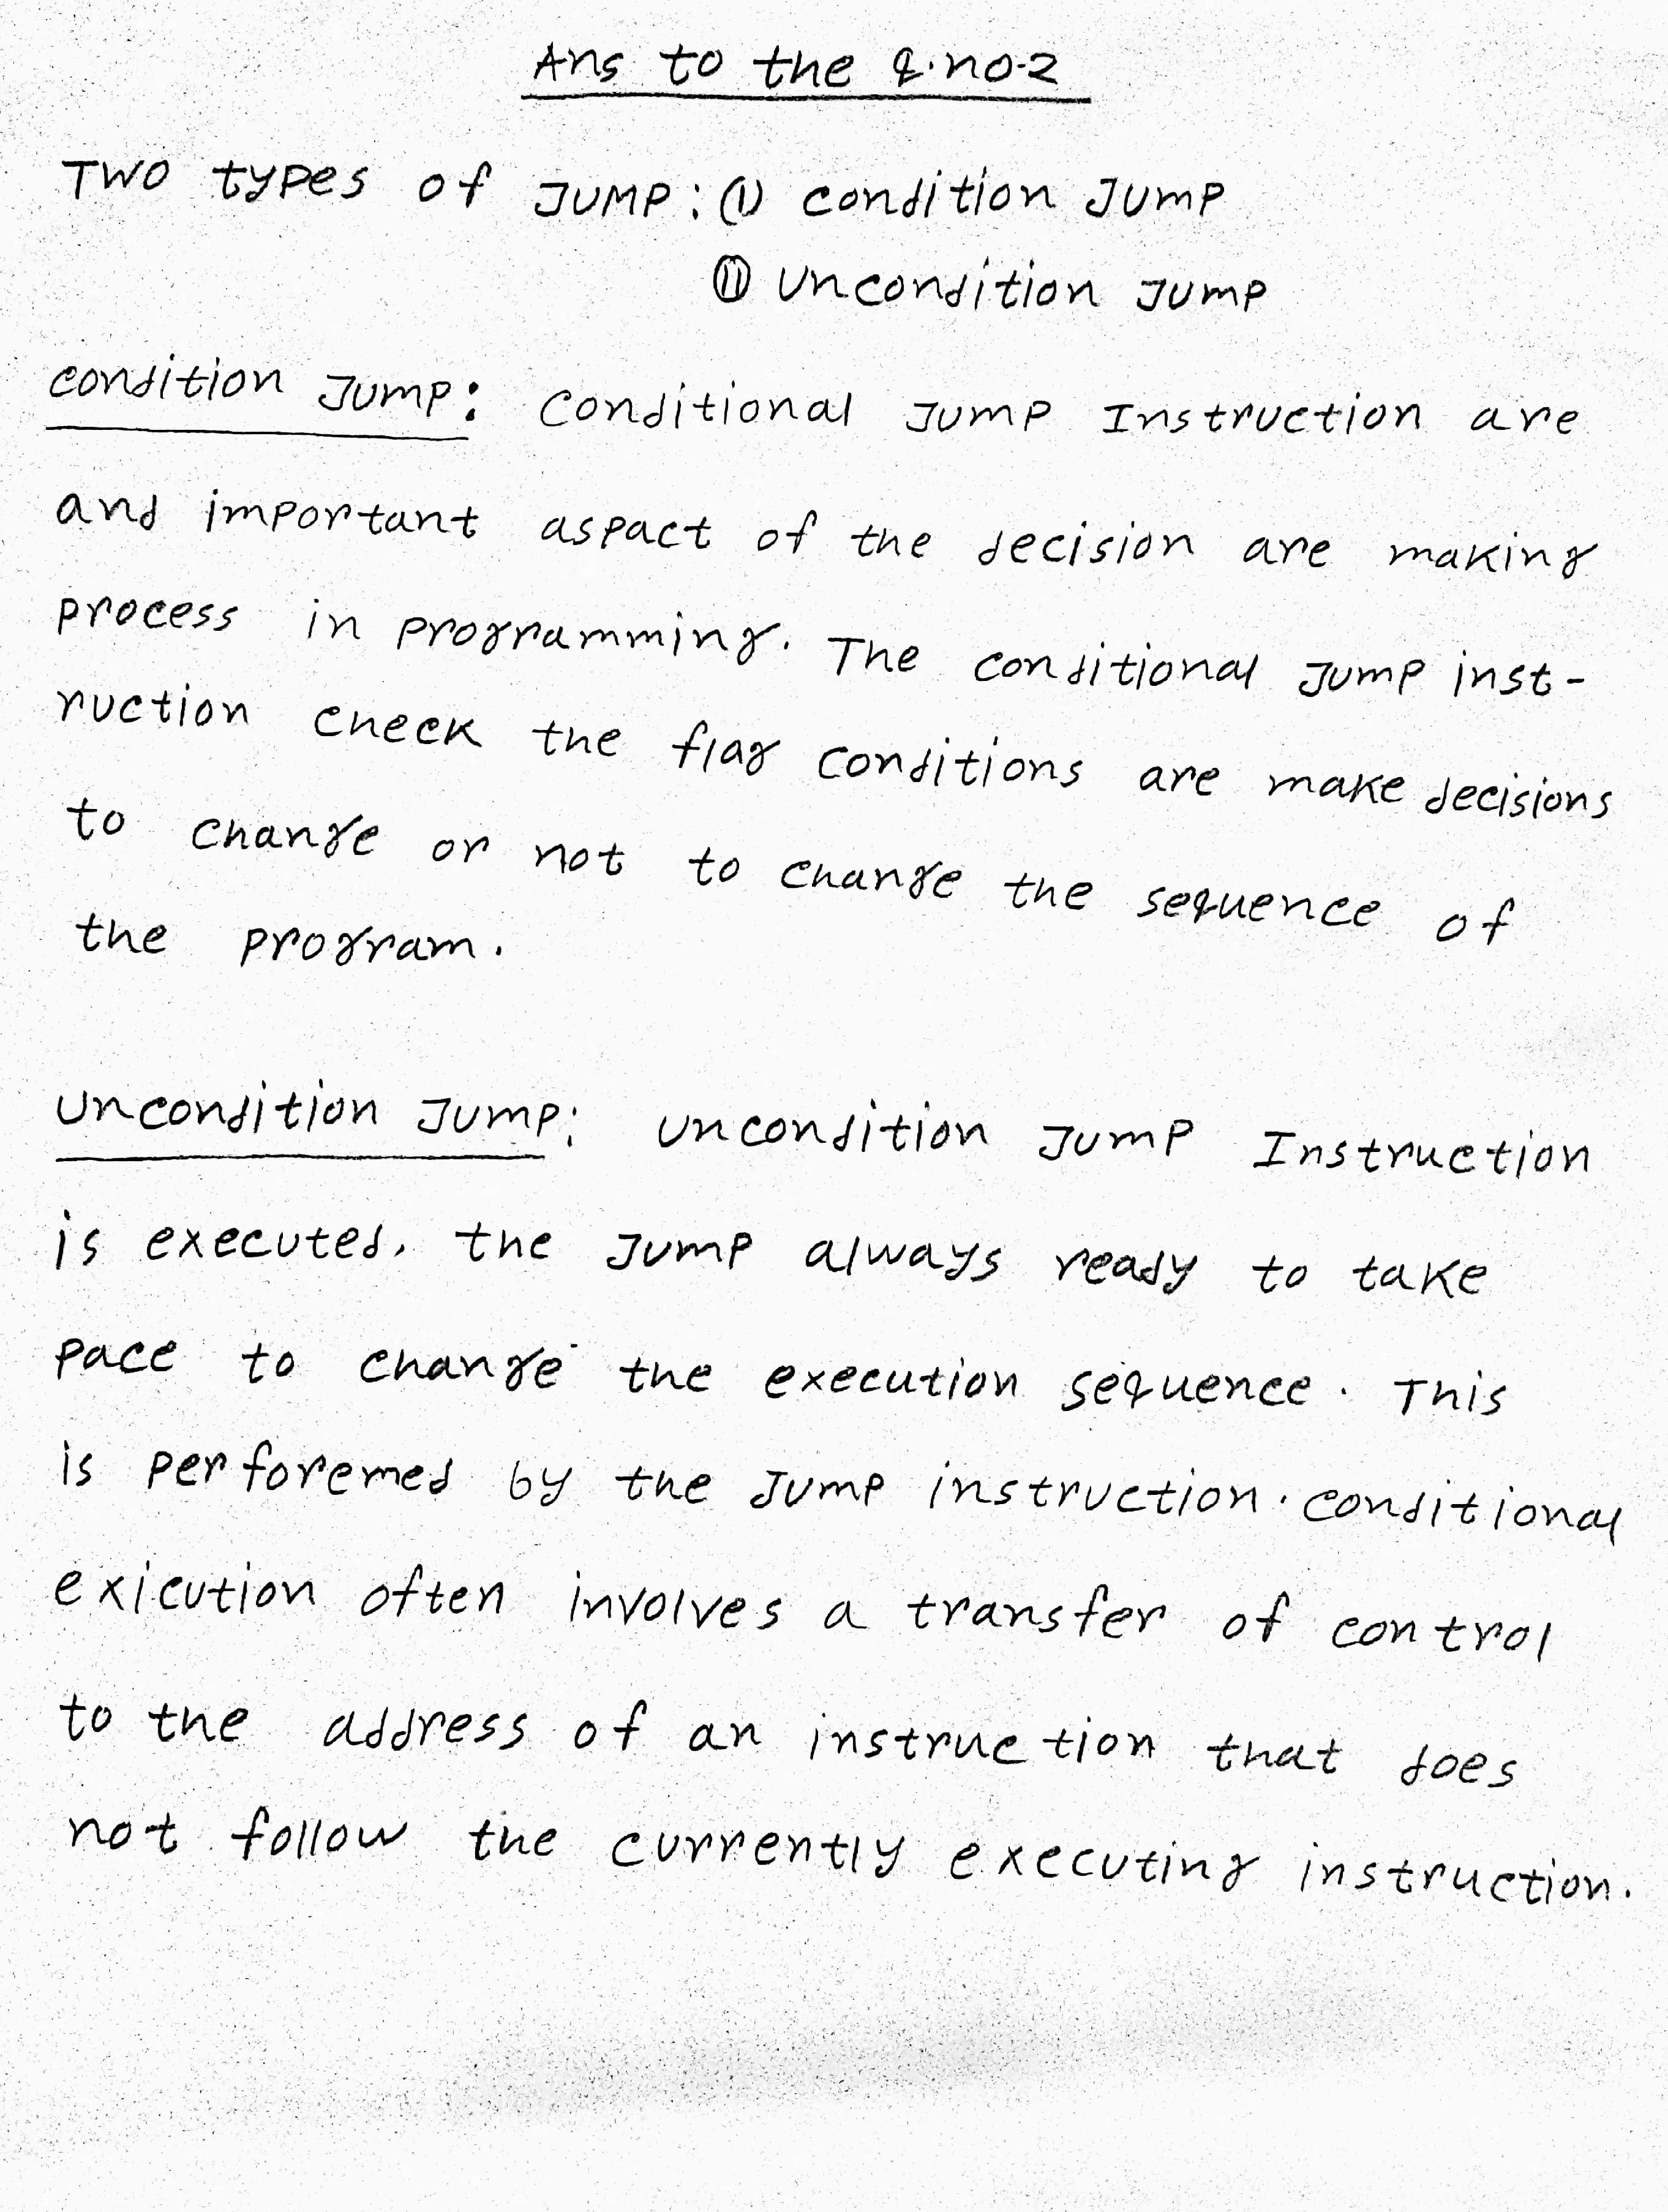 Ans to the q.no-2
Two types of JUMP: (I) condition Jump
(II) Uncondition Jump
condition Jump: Conditional Jump Instruction are
and important aspact of the decision are making
process in programming. The conditional Jump inst-
ruction check the flag conditions are make decisions
to change or not to change the sequence of
the program.
Uncondition Jump: Uncondition Jump Instruction
is executed, the Jump always ready to take
pace to change the execution sequence. This
is perforemed by the Jump instruction. conditional
exicution often involves a transfer of control
to the address of an instruction that does
not follow the currently executing instruction.